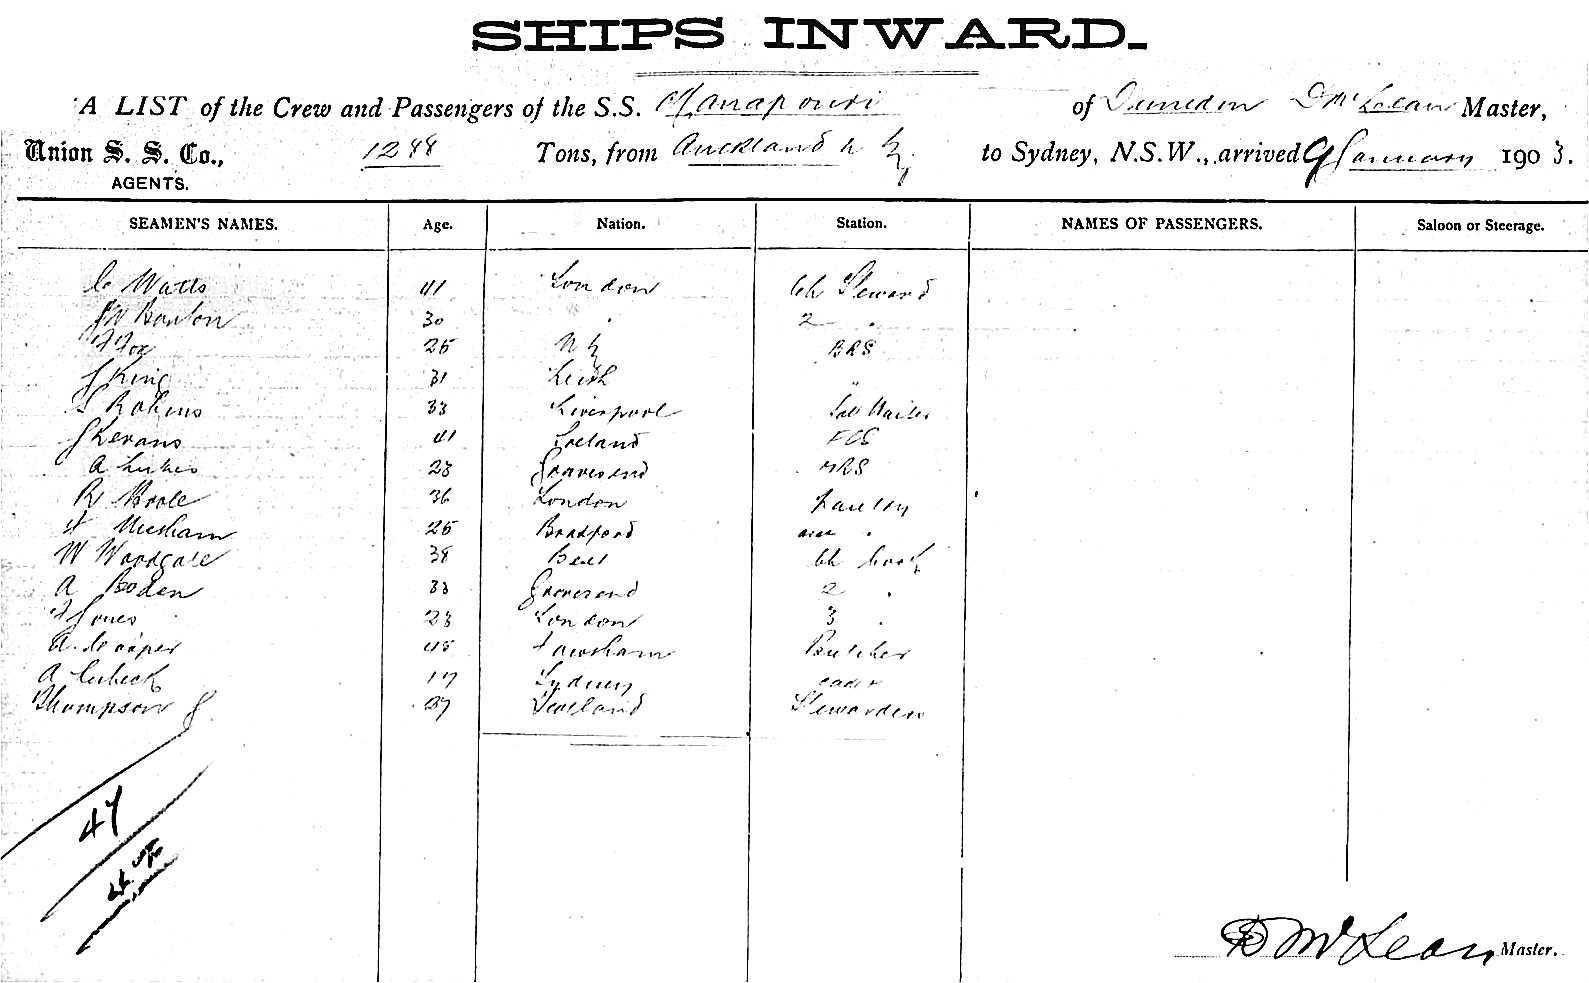 SHIPS INWARD.
A LIST of the Crew and Passengers of the S.S. Manapouri of Dunedin D McLean Master,
Union S. S. Co., 1288 Tons, from Auckland N Z, to Sydney, N.S.W., arrived 9 January 1903.
AGENTS.
SEAMEN'S NAMES. Age. Nation. Station. NAMES OF PASSENGERS. Saloon or Steerage.
C Watts 41 London Ch Steward
J W Barton 30 " 2 "
F Fox 25 N Z BRS
J King 31 Leith "
S Robins 33 Liverpool Sal Waiter
J Levans 41 Ireland FCS
A 23 Gravesend
R Poole 36 London Pantry
Measham 25 Bradford "
W Woodgate 38 Ch Cook
A Boden 33 Gravesend 2 "
F Jones 23 London 3 "
A Cooper 45 Butcher
A Cubeck 17 Sydney
Thompson J 27 Scotland Stewardess
47
D McLean Master.